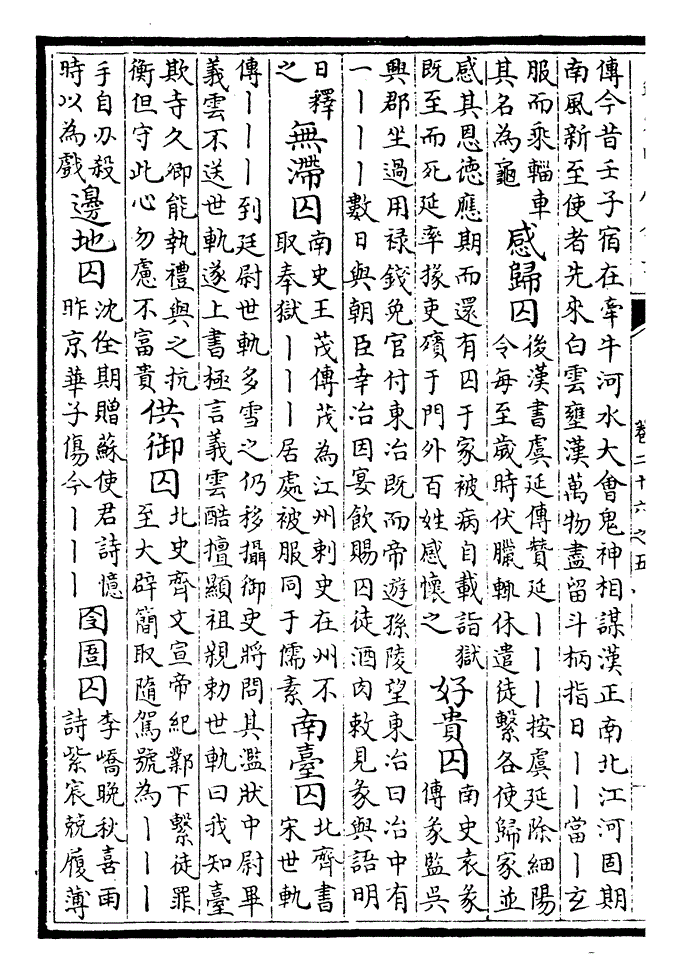 卷二十六之五
傳今昔壬子宿在牽牛河水大會鬼神相謀漢正南北江河固期
南風新至使者先來白雲壅漢萬物盡留斗柄指日丨丨當丨玄
服而乘輜車
其名為龜
感歸囚
後漢書虞延傳贊延丨丨丨按虞延除細陽
令每至歲時伏臘輒休遣徒繫各使歸家並
感其恩德應期而還有囚于家被病自載詣獄
既至而死延率掾吏殯于門外百姓感懷之
好貴囚
南史袁彖
傳彖監吳
興郡坐過用祿錢免官付東冶既而帝遊孫陵望東冶曰冶中有
一丨丨丨數日與朝臣幸冶因宴飲賜囚徒酒肉敕見彖與語明
日釋
之
無滯囚
南史王茂傳茂為江州刺史在州不
取奉獄丨丨丨居處被服同于儒素
南臺囚
北齊書
宋世軌
傳丨丨丨到廷尉世軌多雪之仍移攝御史將問其濫狀中尉畢
義雲不送世軌遂上書極言義雲酷擅顯祖親勅世軌曰我知臺
欺寺久卿能執禮與之抗
衡但守此心勿慮不富貴
供御囚
北史齊文宣帝紀鄴下繫徒罪
至大辟簡取隨駕號為丨丨丨
手自刃殺
時以為戲
邊地囚
沈佺期贈蘇使君詩憶
昨京華子傷今丨丨丨
囹圄囚
李嶠晚秋喜雨
詩紫宸兢履薄